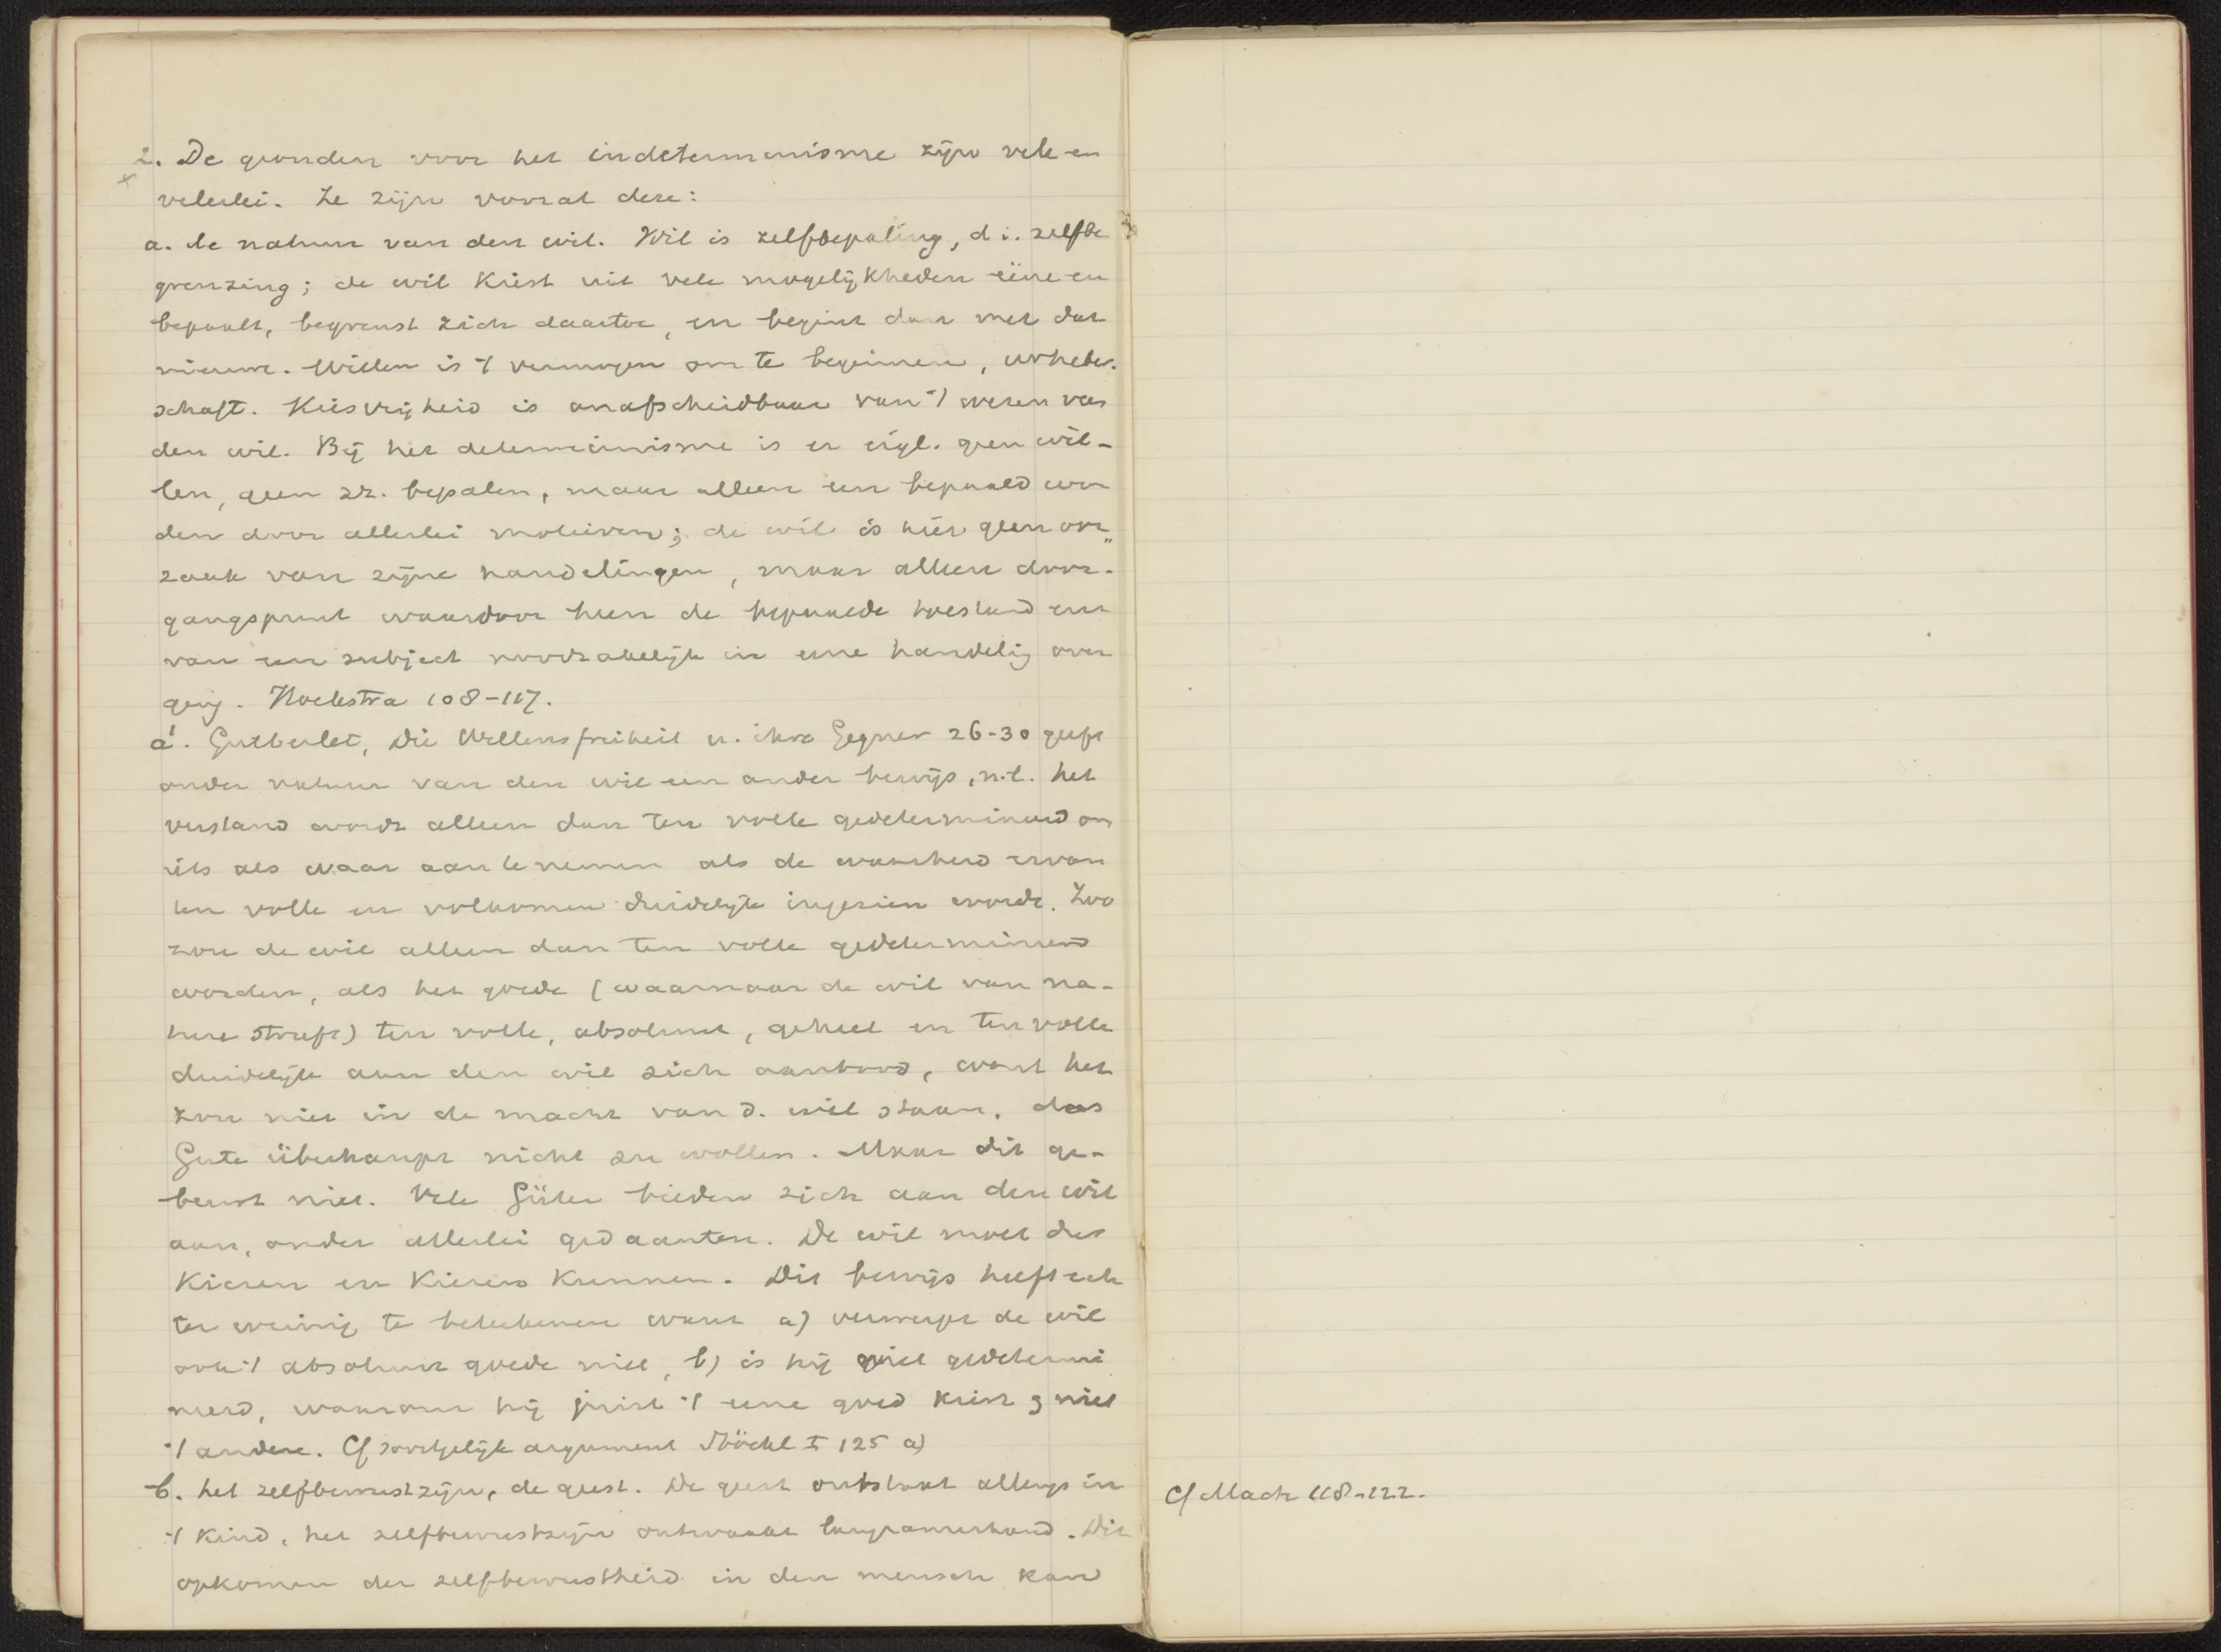 2. De gronden voor het indeterminisme zijn vele en
velerlei. Ze zijn vooral deze:
a. de natuur van den wil. Wil is zelfbepaling, d.i. zelfbe
grenzing; de wil kiest uit vele mogelijkheden ééne en
bepaalt, begrenst zich daartoe, en begint dan met dat
nieuwe. Willen is 't vermogen om te beginnen, urheber-
schaft. Keusvrijheid is onafscheidbaar van 't wezen van
den wil. Bij het determinisme is er eigl. geen wil-
len, geen zz. bepalen, maar alleen een bepaald wor
den door allerlei motieven; de wil is hier geen oor„
zaak van zijne handelingen, maar alleen door-
gangspunt waardoor heen de bepaalde toestand een
van een subject noodzakelijk in eene handelig over
ging. Hoekstra 108-117.
a'. Gutberlet, Die Willensfreiheit u. ihre Gegner 26-30 geeft
onder natuur van den wil een ander bewijs, n.l. het
verstand wordt alleen dan ten volle gedetermineerd om
iets als waar aan te nemen als de waarheid ervan
ten volle en volkomen duidelijk ingezien wordt. Zoo
zou de wil alleen dan ten volle gedetermineerd
worden, als het goede (waarnaar de wil van na-
ture streeft) ten volle, absoluut, geheel en ten volle
duidelijk aan den wil zich aanbood, want het
zou niet in de macht van d. wil staan, das
Gute überhaupt nicht zu wollen. Maar dit ge-
beurt niet. Vele Güter bieden zich aan den wil
aan, onder allerlei gedaanten. De wil moet dus
kiezen en kiezen kunnen. Dit bewijs heeft ech
ter weinig te beteekenen want a) verwerpt de wil
ook 't absoluut goede niet, b) is hij niet gedetermi
neerd, waarom hij juist 't eene goed kiest & niet
't andere. Cf soortgelijk argument Stöckl I 125 a)
b. het zelfbewustzijn, de geest. De geest ontstaat allengs in
't kind, het zelfbewustzijn ontwaakt langzamerhand. Dit
opkomen der zelfbewustheid in den mensch kan
Cf Mach 118-122.